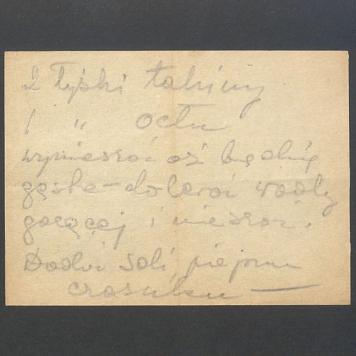 2 łyżki tahiny
1 " octu
wymieszać aż będzie
gęste - dolewać wody
gorącej i mieszać.
Dodać soli, pieprzu
czosnku —